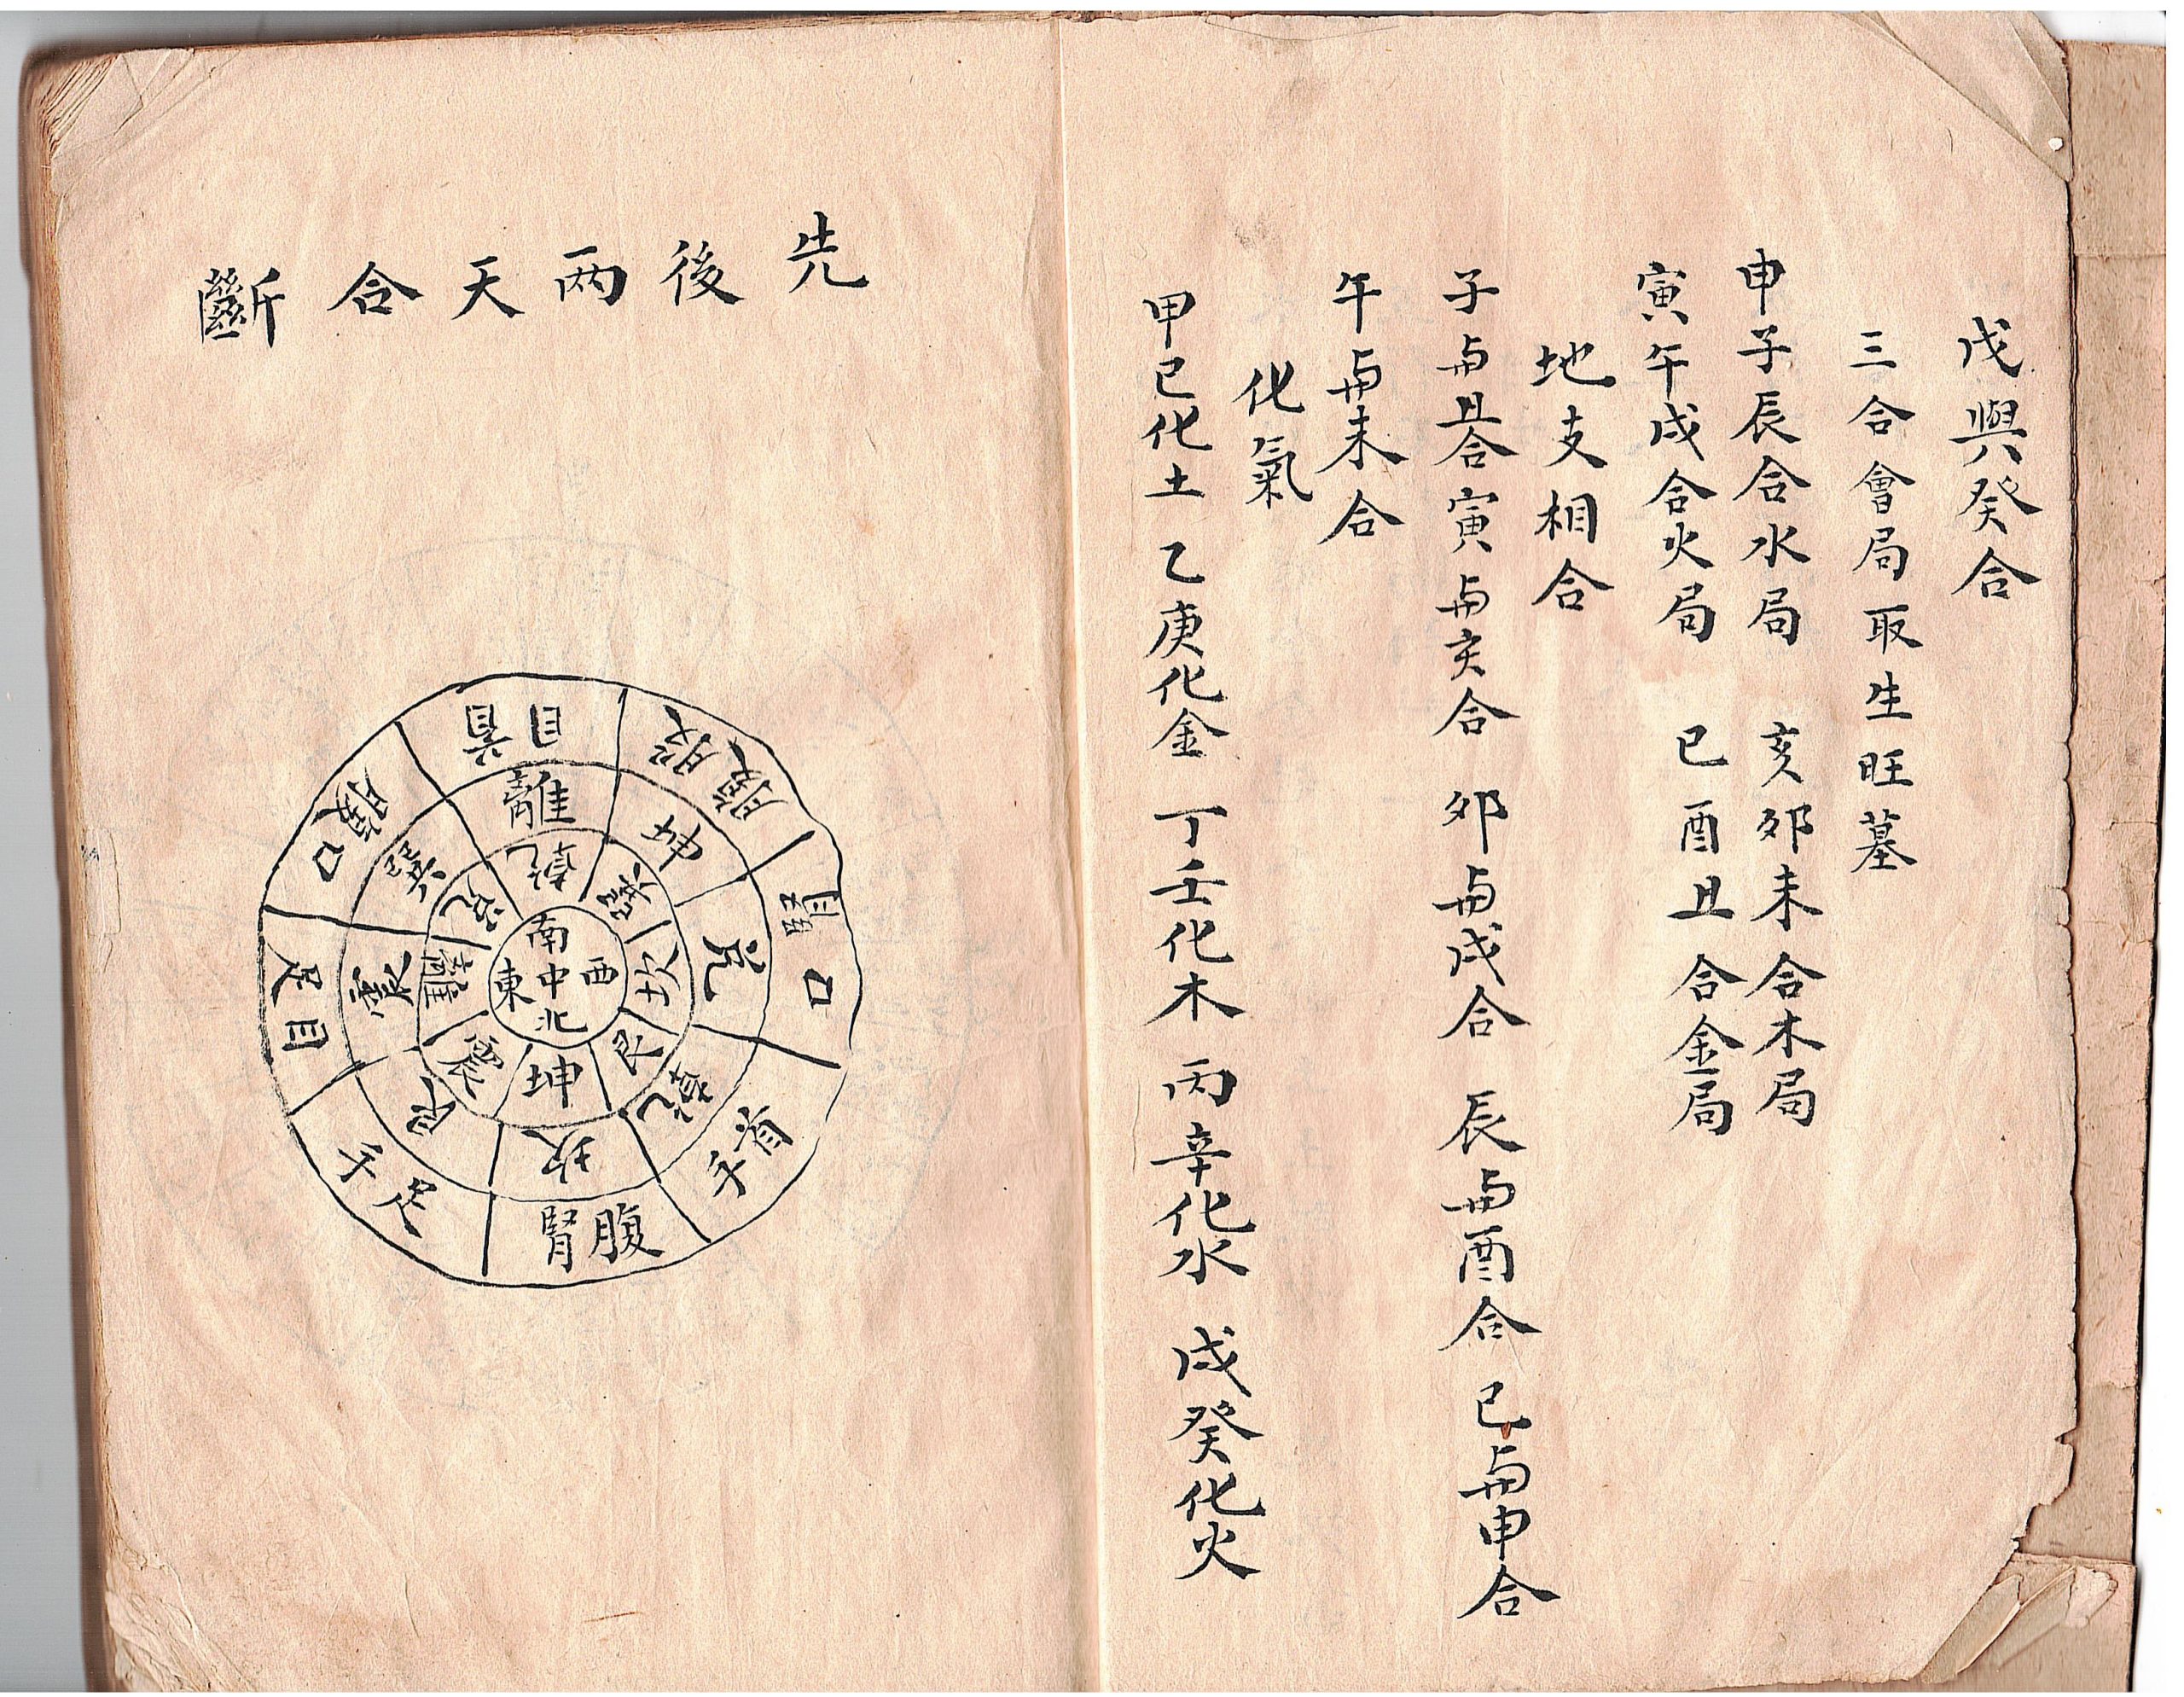 戊與癸合
三合會局取生旺墓
申子辰合水局 亥卯未合木局
寅午戌合火局 巳酉丑合金局
地支相合
子与丑合 寅与亥合 卯与戌合 辰与酉合 巳与申合
午与未合
化氣
甲己化土 乙庚化金 丁壬化木 丙辛化水 戊癸化火
先後两天合斷
南
東中西
北
乾
坎
艮
坤
震
離
兌
離
兌
乾
坎
艮
震
巽
目首
腎口
首手
腹腎
足手
目足
口